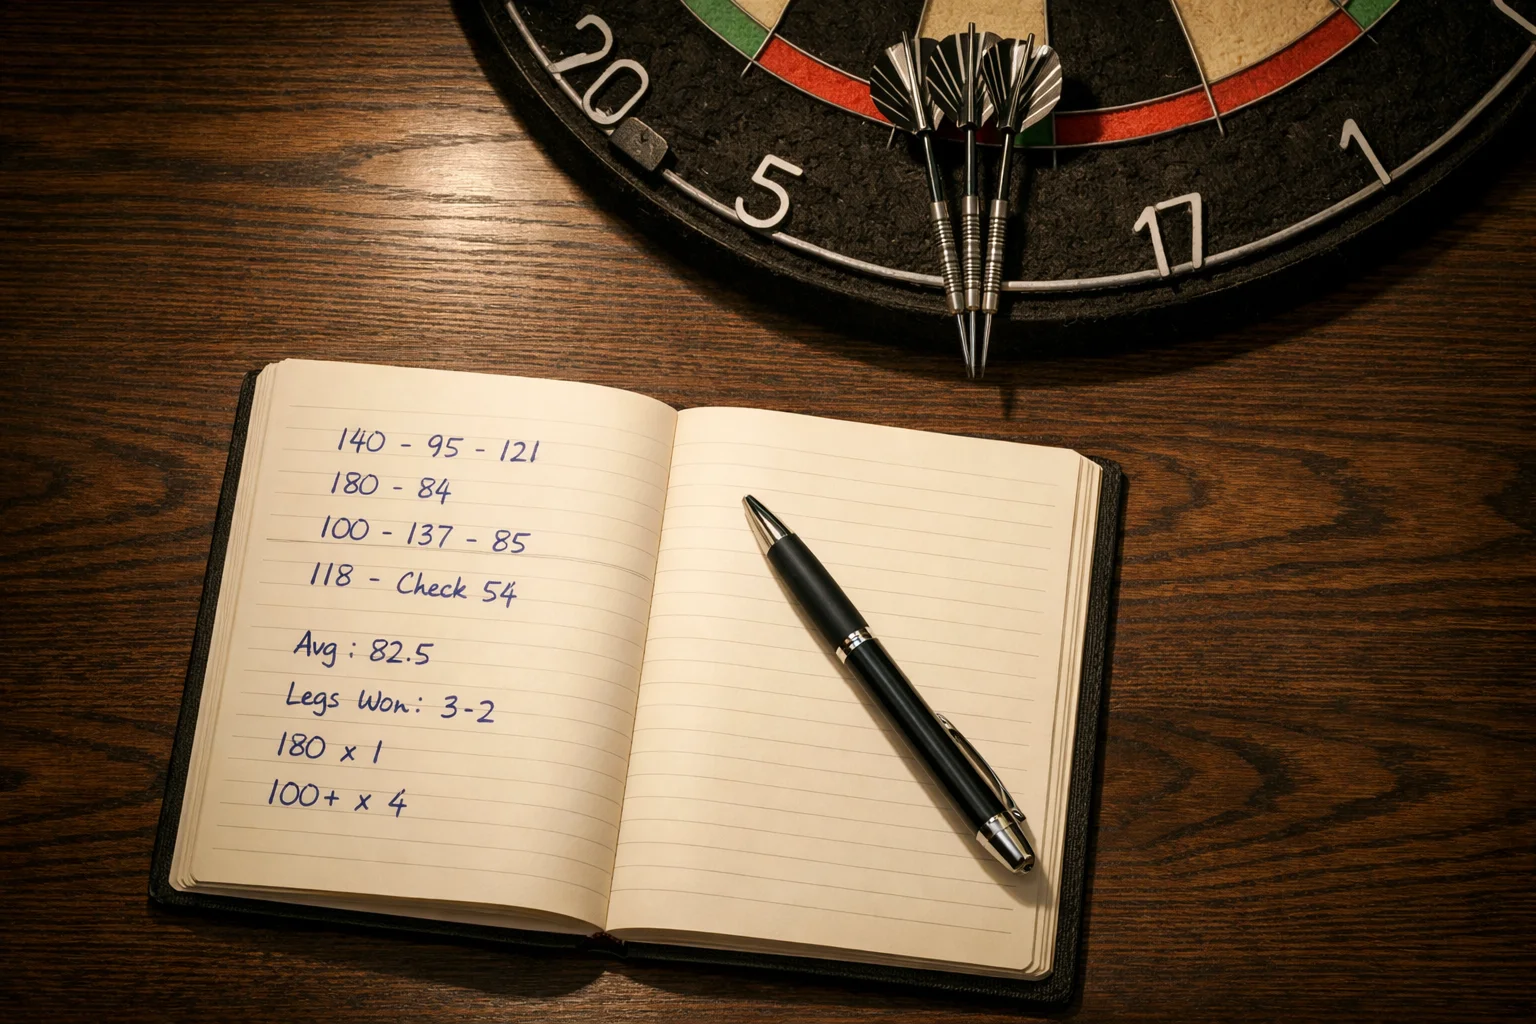 20
5
17
1
140 - 95 - 121
180 - 84
100 - 137 - 85
118 - Check 54
Avg : 82.5
Legs Won: 3-2
180 x 1
100+ x 4